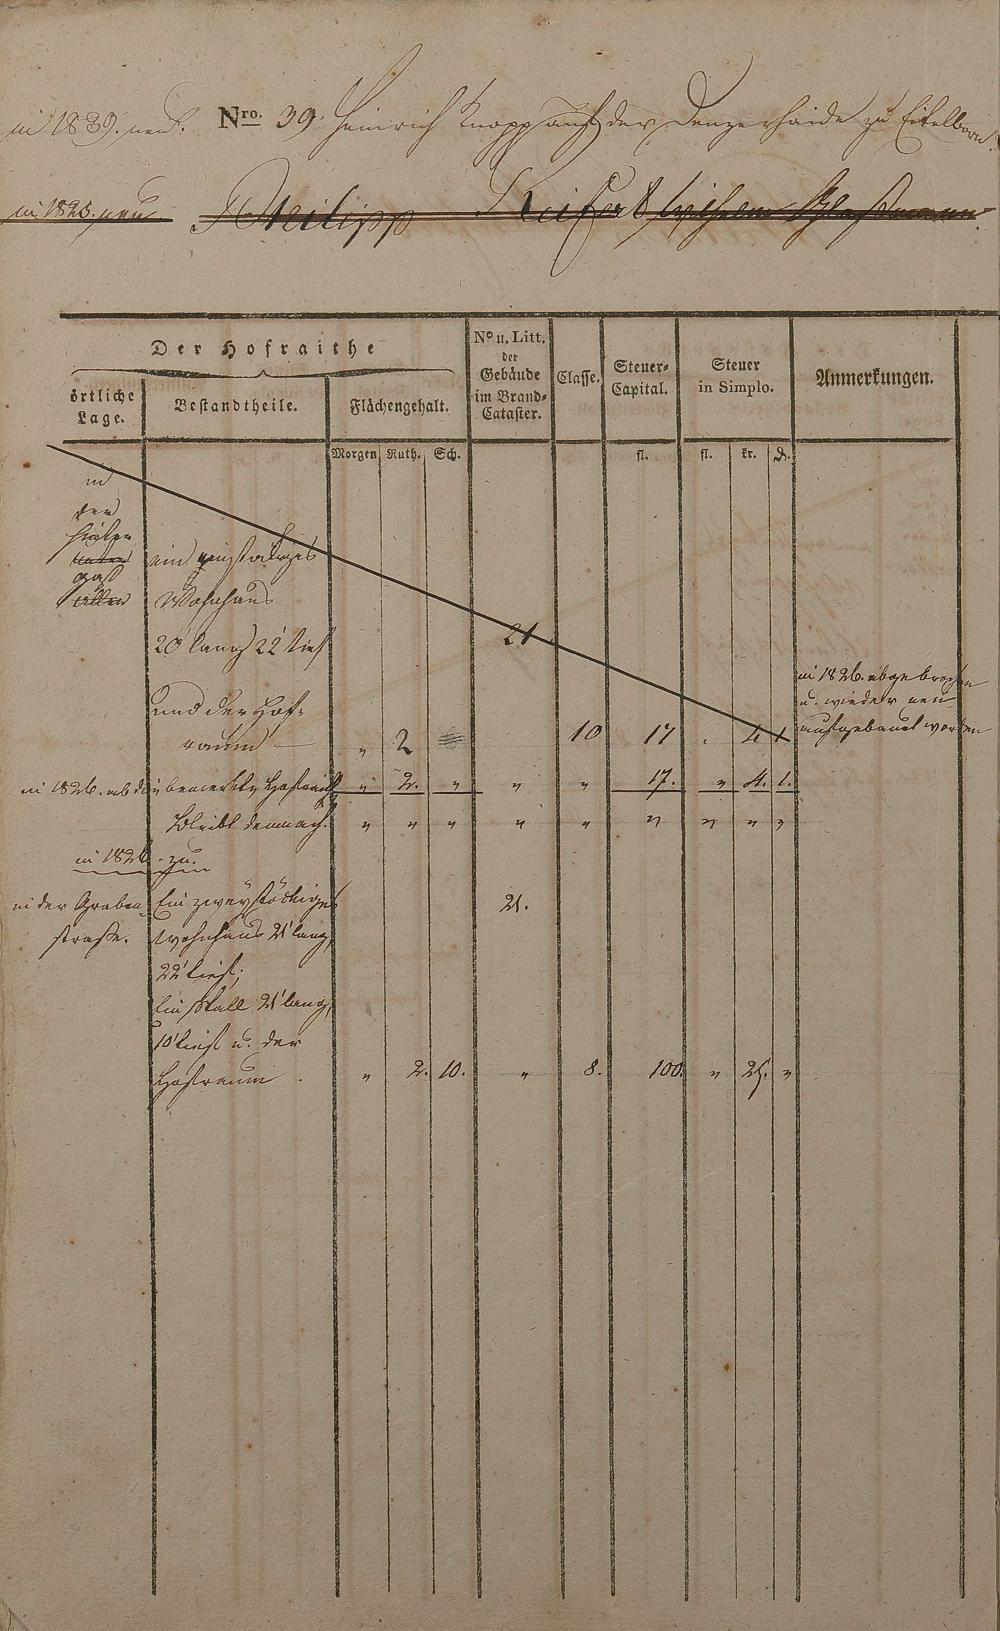 in 1839. neu. Nro. 39. Heinrich Knopp auf der Denzerhaide zu Eitelborn.
in 1826. neu Philipp Wilhelm
Der Hofraithe
örtliche Lage.
Bestandtheile.
Flächengehalt.
No u. Litt. der Gebäude im Brand-Cataster.
Classe.
Steuer-Capital.
Steuer in Simplo.
Anmerkungen.
Morgen Ruth. Sch. fl. fl. kr. d.
in
der
gaß
ein einstöckiges
Wohnhaus
20' lang 22' tief 21
und der Hof-
raum — „ 2 10 17 . 4 1
in 1826. abgebrochen
u. wieder neu
aufgebaut worden
in 1826. ab die bemerkte Hofraith „ 2. „ „ „ 17. „ 4. 1.
Bleibt demnach. „ „ „ „ „ „ „ „ „
in 1826. zu.
in der Graben- Ein zweystöckiges 21.
straße. Wohnhaus 21' lang,
22' tief;
Ein Stall 21' lang,
10' tief u. der
Hofraum . „ 2. 10. „ 8. 100. „ 25. „